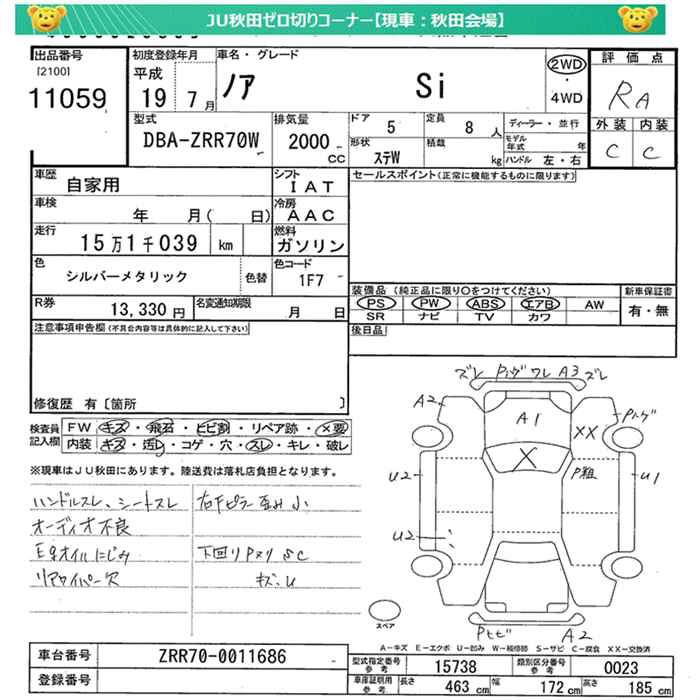 JU秋田ゼロ切りコーナー【現車：秋田会場】
出品番号
[2100]
11059
初度登録年月
平成
19年 7月
車名・グレード
ノア Si
2WD
・
4WD
評価点
RA
外装 内装
C C
型式
DBA-ZRR70W
排気量
2000
CC
ドア 5
定員 8人
ディーラー・並行
形状 ステW
積載 kg
モデル年式 年
ハンドル 左・右
車歴 自家用
シフト IAT
車検 年 月( 日)
冷房 AAC
走行 15万1千039 km
燃料 ガソリン
色 シルバーメタリック
色替
色コード 1F7
R券 13,330円
名変通知期限 月 日
セールスポイント(正常に機能するものに限ります)
装備品 (純正品に限り○をつけてください)
新車保証書
PS PW ABS エアB AW
SR ナビ TV カワ
有・無
後日品
注意事項申告欄(不具合内容等は具体的に記入して下さい)
修復歴 有〔箇所 〕
検査員記入欄
FW キズ・飛石・ヒビ割・リペア跡・×要
内装 キズ・汚レ・コゲ・穴・スレ・キレ・破レ
※現車はJU秋田にあります。陸送費は落札店負担となります。
ハンドルスレ、シートスレ
オーディオ不良
Egオイルにじみ
リアワイパー欠
右Fピラー歪み小
下回りPヌリ SC
キズ、U
ズレ Pハゲ ワレ A3 ズレ
A2
Pハゲ
A1
XX
X
P粗
U2
U1
U2
スペア
Pヒビ A2
A-キズ E-エクボ U-凹み W-補修跡 S-サビ C-腐食 XX-交換済
車台番号 ZRR70-0011686
登録番号
型式指定番号 参考 15738
類別区分番号 参考 0023
車庫証明用 参考
長さ 463 cm
幅 172 cm
高さ 185 cm